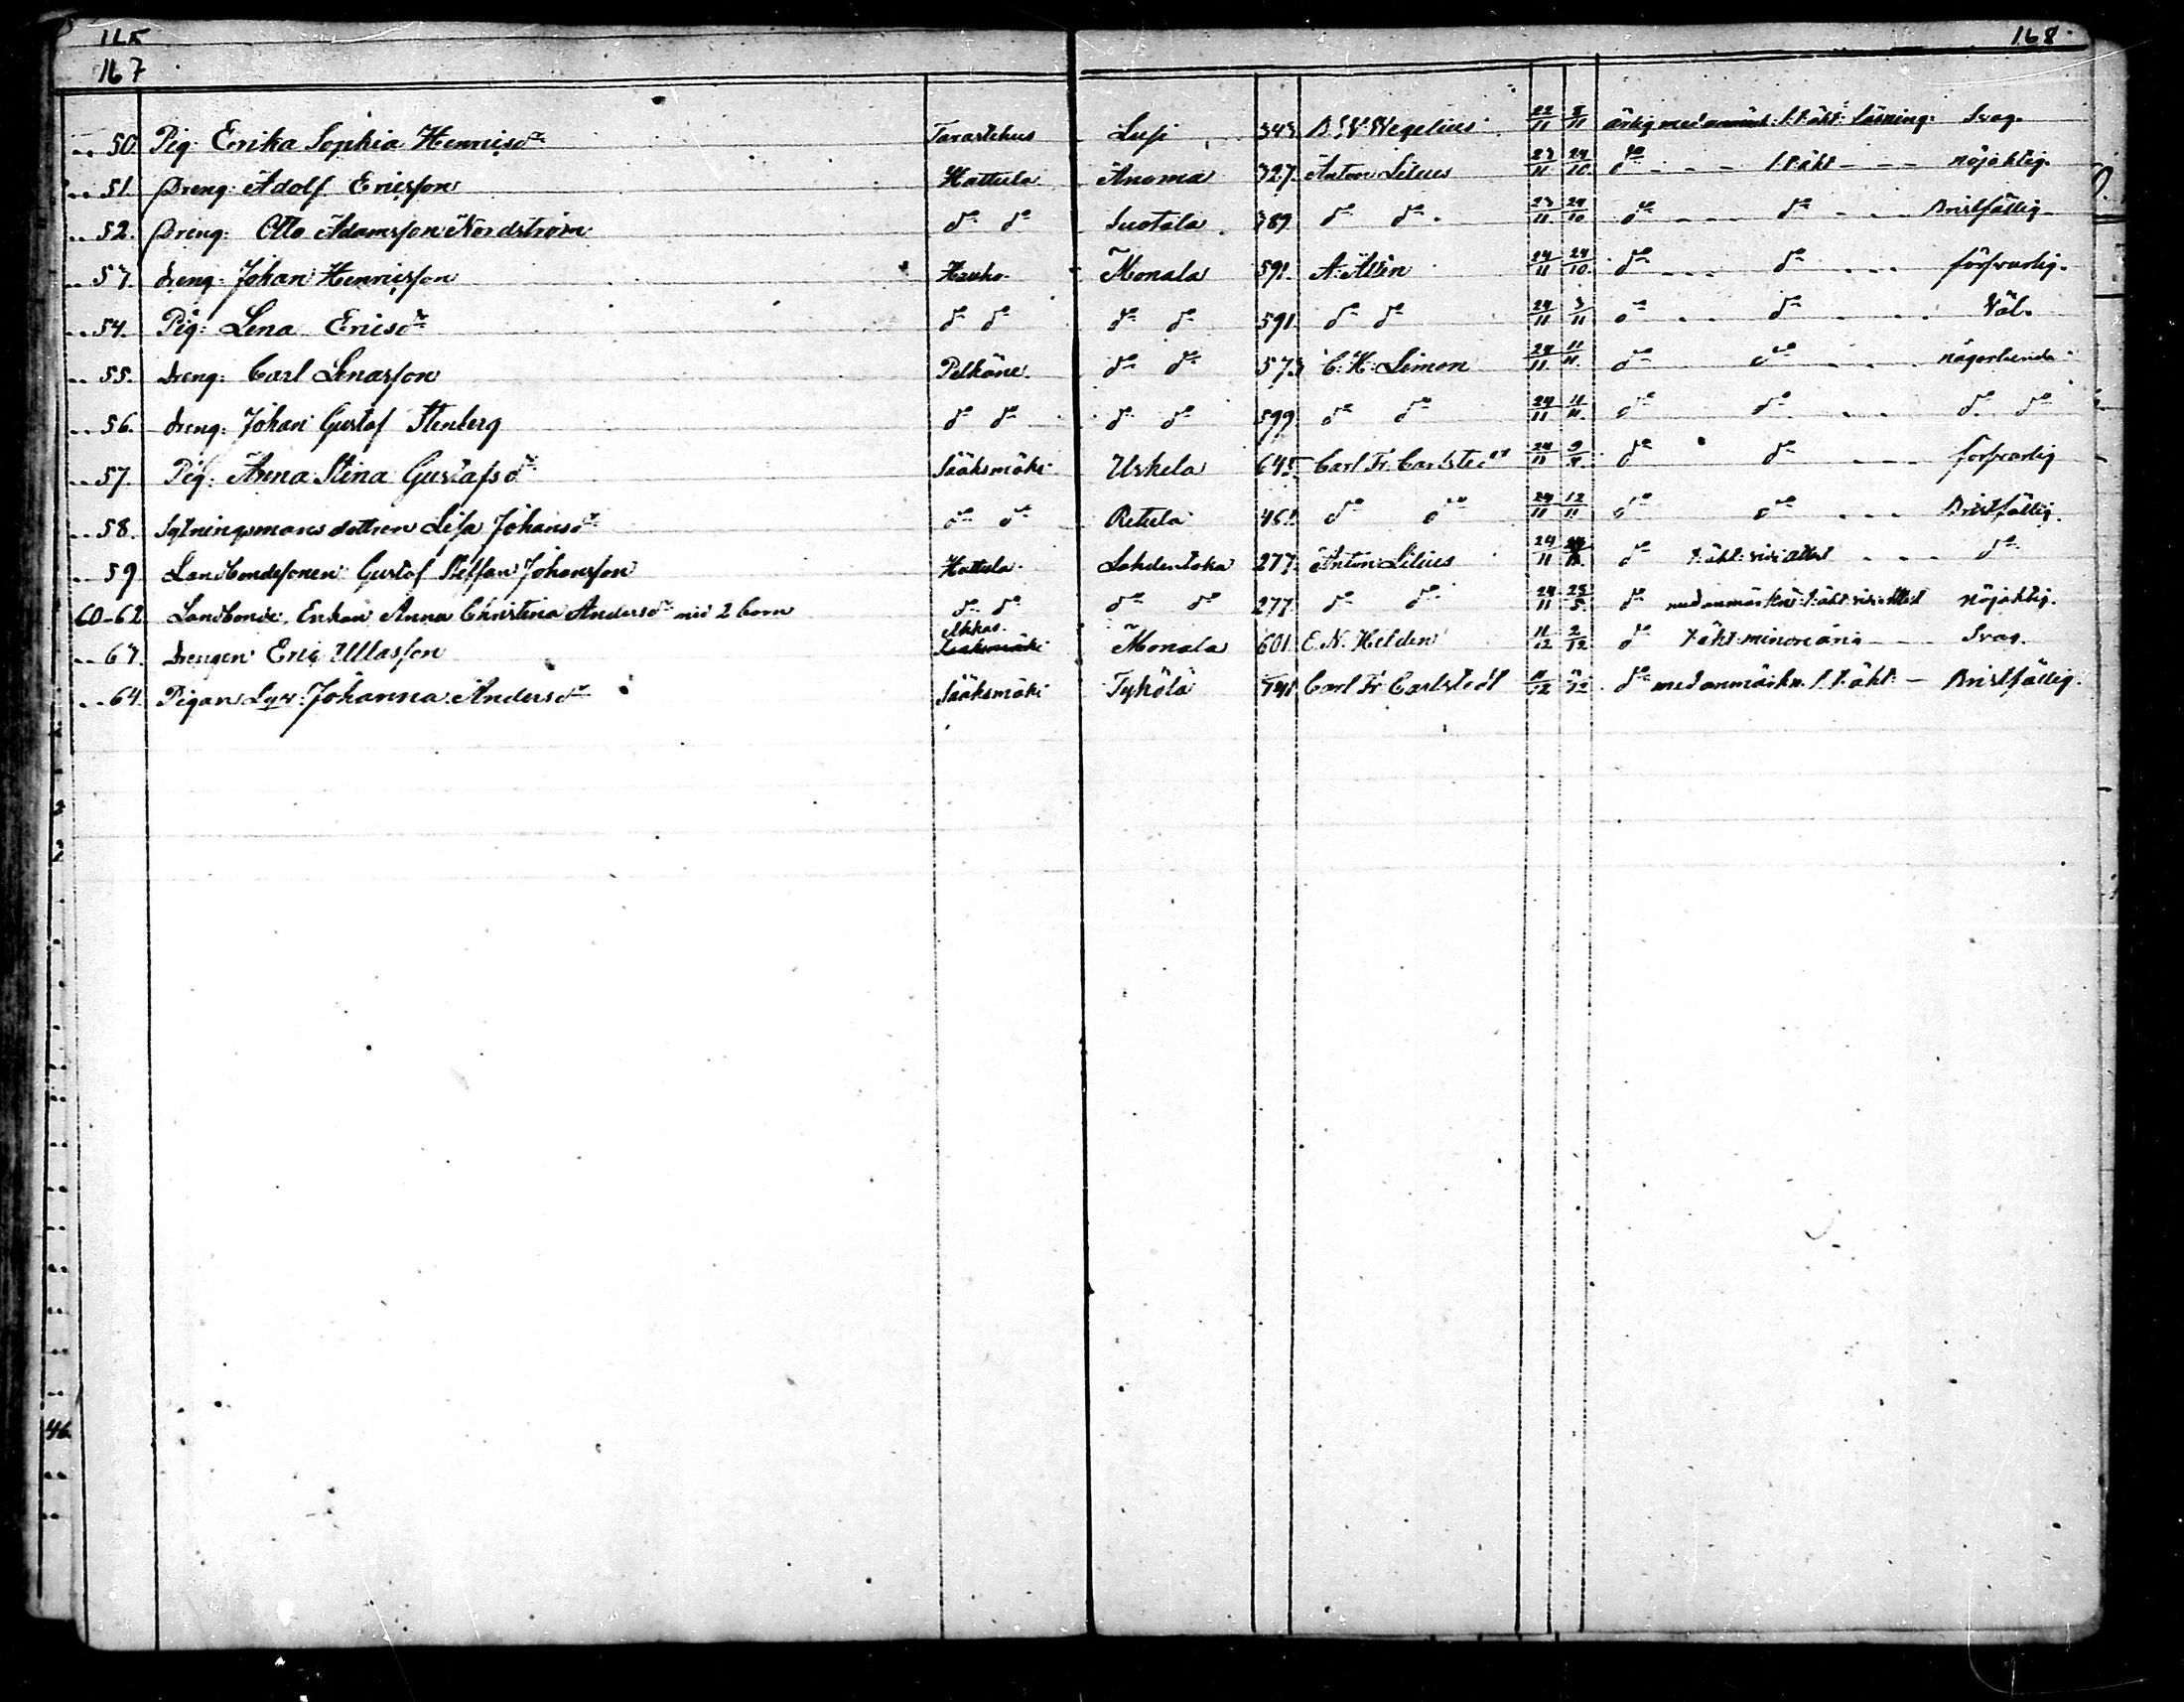 165 168
167
50. Pig: Erika Sophia Henricsdr Tavastehus Lusi 343. B. W. Wegelius 22/11 8/11 ärlig med anmärk: l. t. äkt: läsning: Svag.
51. Dreng: Adolf Ericsson Hattula Anoma 327. Anton Lilius 23/11 24/10 do l. t. äkt nöjaktig.
52. Dreng: Otto Adamsson Nordström do do Suotala 389. do do 23/11 24/10 do do Bristfällig
53. dreng: Johan Henricsson Hauho Monala 591. A. Allén 24/11 24/10 do do försvarlig.
54. Pig: Lena Ericsdr do do do do 591. do do 24/11 3/11 do do Väl.
55. dreng: Carl Lenasson Pelkäne. do do 573 C. H. Limon 24/11 11/11. do do någorlunda
56. dreng: Johan Gustaf Stenberg do do do do 599 do do 24/11 11/11. do do do do
57. Pig: Anna Stina Gustafsdr Sääksmäki Uskela 645. Carl Fr. Carlstedt 24/11 9/11. do do försvarlig
58. Sytningsmans dottren Lisa Johansdr do do Retula 451. do do 24/11 12/11 do do Bristfällig.
59 Landbondesonen Gustaf Steffan Johansson Hattula Lahdentaka 277. Anton Lilius 24/11 do t. äkt: vis: attest do
60-62. Landbonde Enkan Anna Christina Andersdr med 2 barn do do do do 277. do do 24/11 25/5. do med anmärkn: t. äkt vis: attest nöjaktig.
Akkas.
63. Drengen Eric Ullasson Sääksmäki Monala 601. E. N. Helden 11/12 2/12 do t. äkt: minoreårig Svag.
64. Pigan Johanna Andersdr Sääksmäki Tyhölä 741 Carl Fr. Carlstedt 11/12 do med anmärkn. l. t. äkt: Bristfällig.
46.